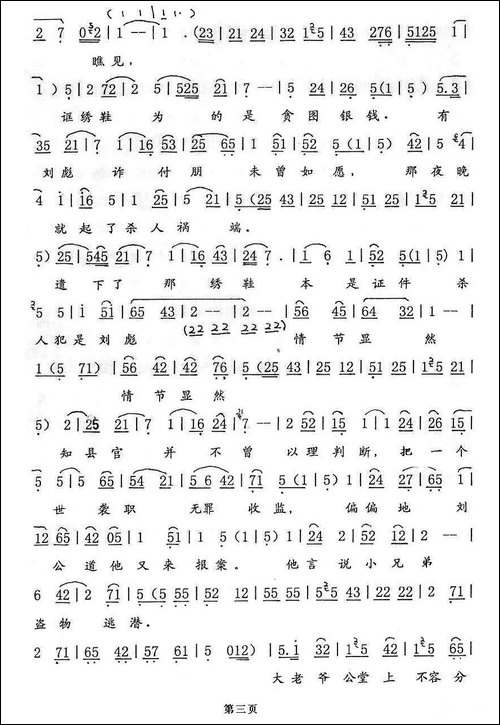 2 7 | 0 3 2 | 1 — | 1 . (23 | 21 24 | 24 32 | 1 5 | 43 276 | 5125 1 |
瞧见，
1) 5 | 2 72 | 2 5 | 525 21 | 7 — | 5 24 | 26 5 (1 | 5) 5.3 |
诓绣鞋 为 的 是 贪 图 银 钱。 有
35 21 | 7 1 | 16 53 | 25 65 | 1 51 | 52 5 (1 | 5) 42 | 5 4 |
刘彪 诈 付 朋 未 曾 如 愿， 那 夜 晚
4 1 | 16 5 | 1 25 | 5 21 | 5 (25 43 | 25 12 | 51 25 | 1 5 21 |
就 起 了 杀 人 祸 端。
5) 25 | 545 21 | 7 1 | 16 43 | 24 7 . | 1 6 1 | 52 5 (1 | 5) 1 |
遗 下 了 那 绣 鞋 本 是 证 件 杀
5 5 | 1 51 | 65 43 | 2 — | 2 — | 56 45 | 64 32 | 1 — |
人犯是 刘 彪 (22 22 22 22) 情 节 显 然
1 (5 71) | 56 42 | 42 76 | 5 (25 43 | 25 12 | 51 25 | 1 5 21 |
情 节 显 然
5) 2 | 25 21 | 7 1 | 16 24 | 7 — | 2 52 | 15 1 | 1 24 | 26 15 |
知 县 官 并 不 曾 以 理 判 断， 把 一 个
5 5 | 5 65 | 54 21 | 5 6 42 | 71 5 (1 | 5) 1 | 24 27 | 65 1 |
世 袭 职 无 罪 收 监， 偏 偏 地 刘
12 65 | 42 05 | 1 51 | 5 5 (1 | 5) 1 | 24 2 | 52 12 | 2 — |
公 道 他 又 来 报 案。 他 言 说 小 兄 弟
6 42 | 2 71 | 5 (5 55 | 52 55 | 52 52 | 5 5 43 | 22 22 | 2 71 |
盗 物 逃 潜。
2 71 | 65 42 | 71 65 | 5 012) | 5.1 32 | 1 5 42 | 1 5 65 |
大 老 爷 公 堂 上 不 容 分
第三页